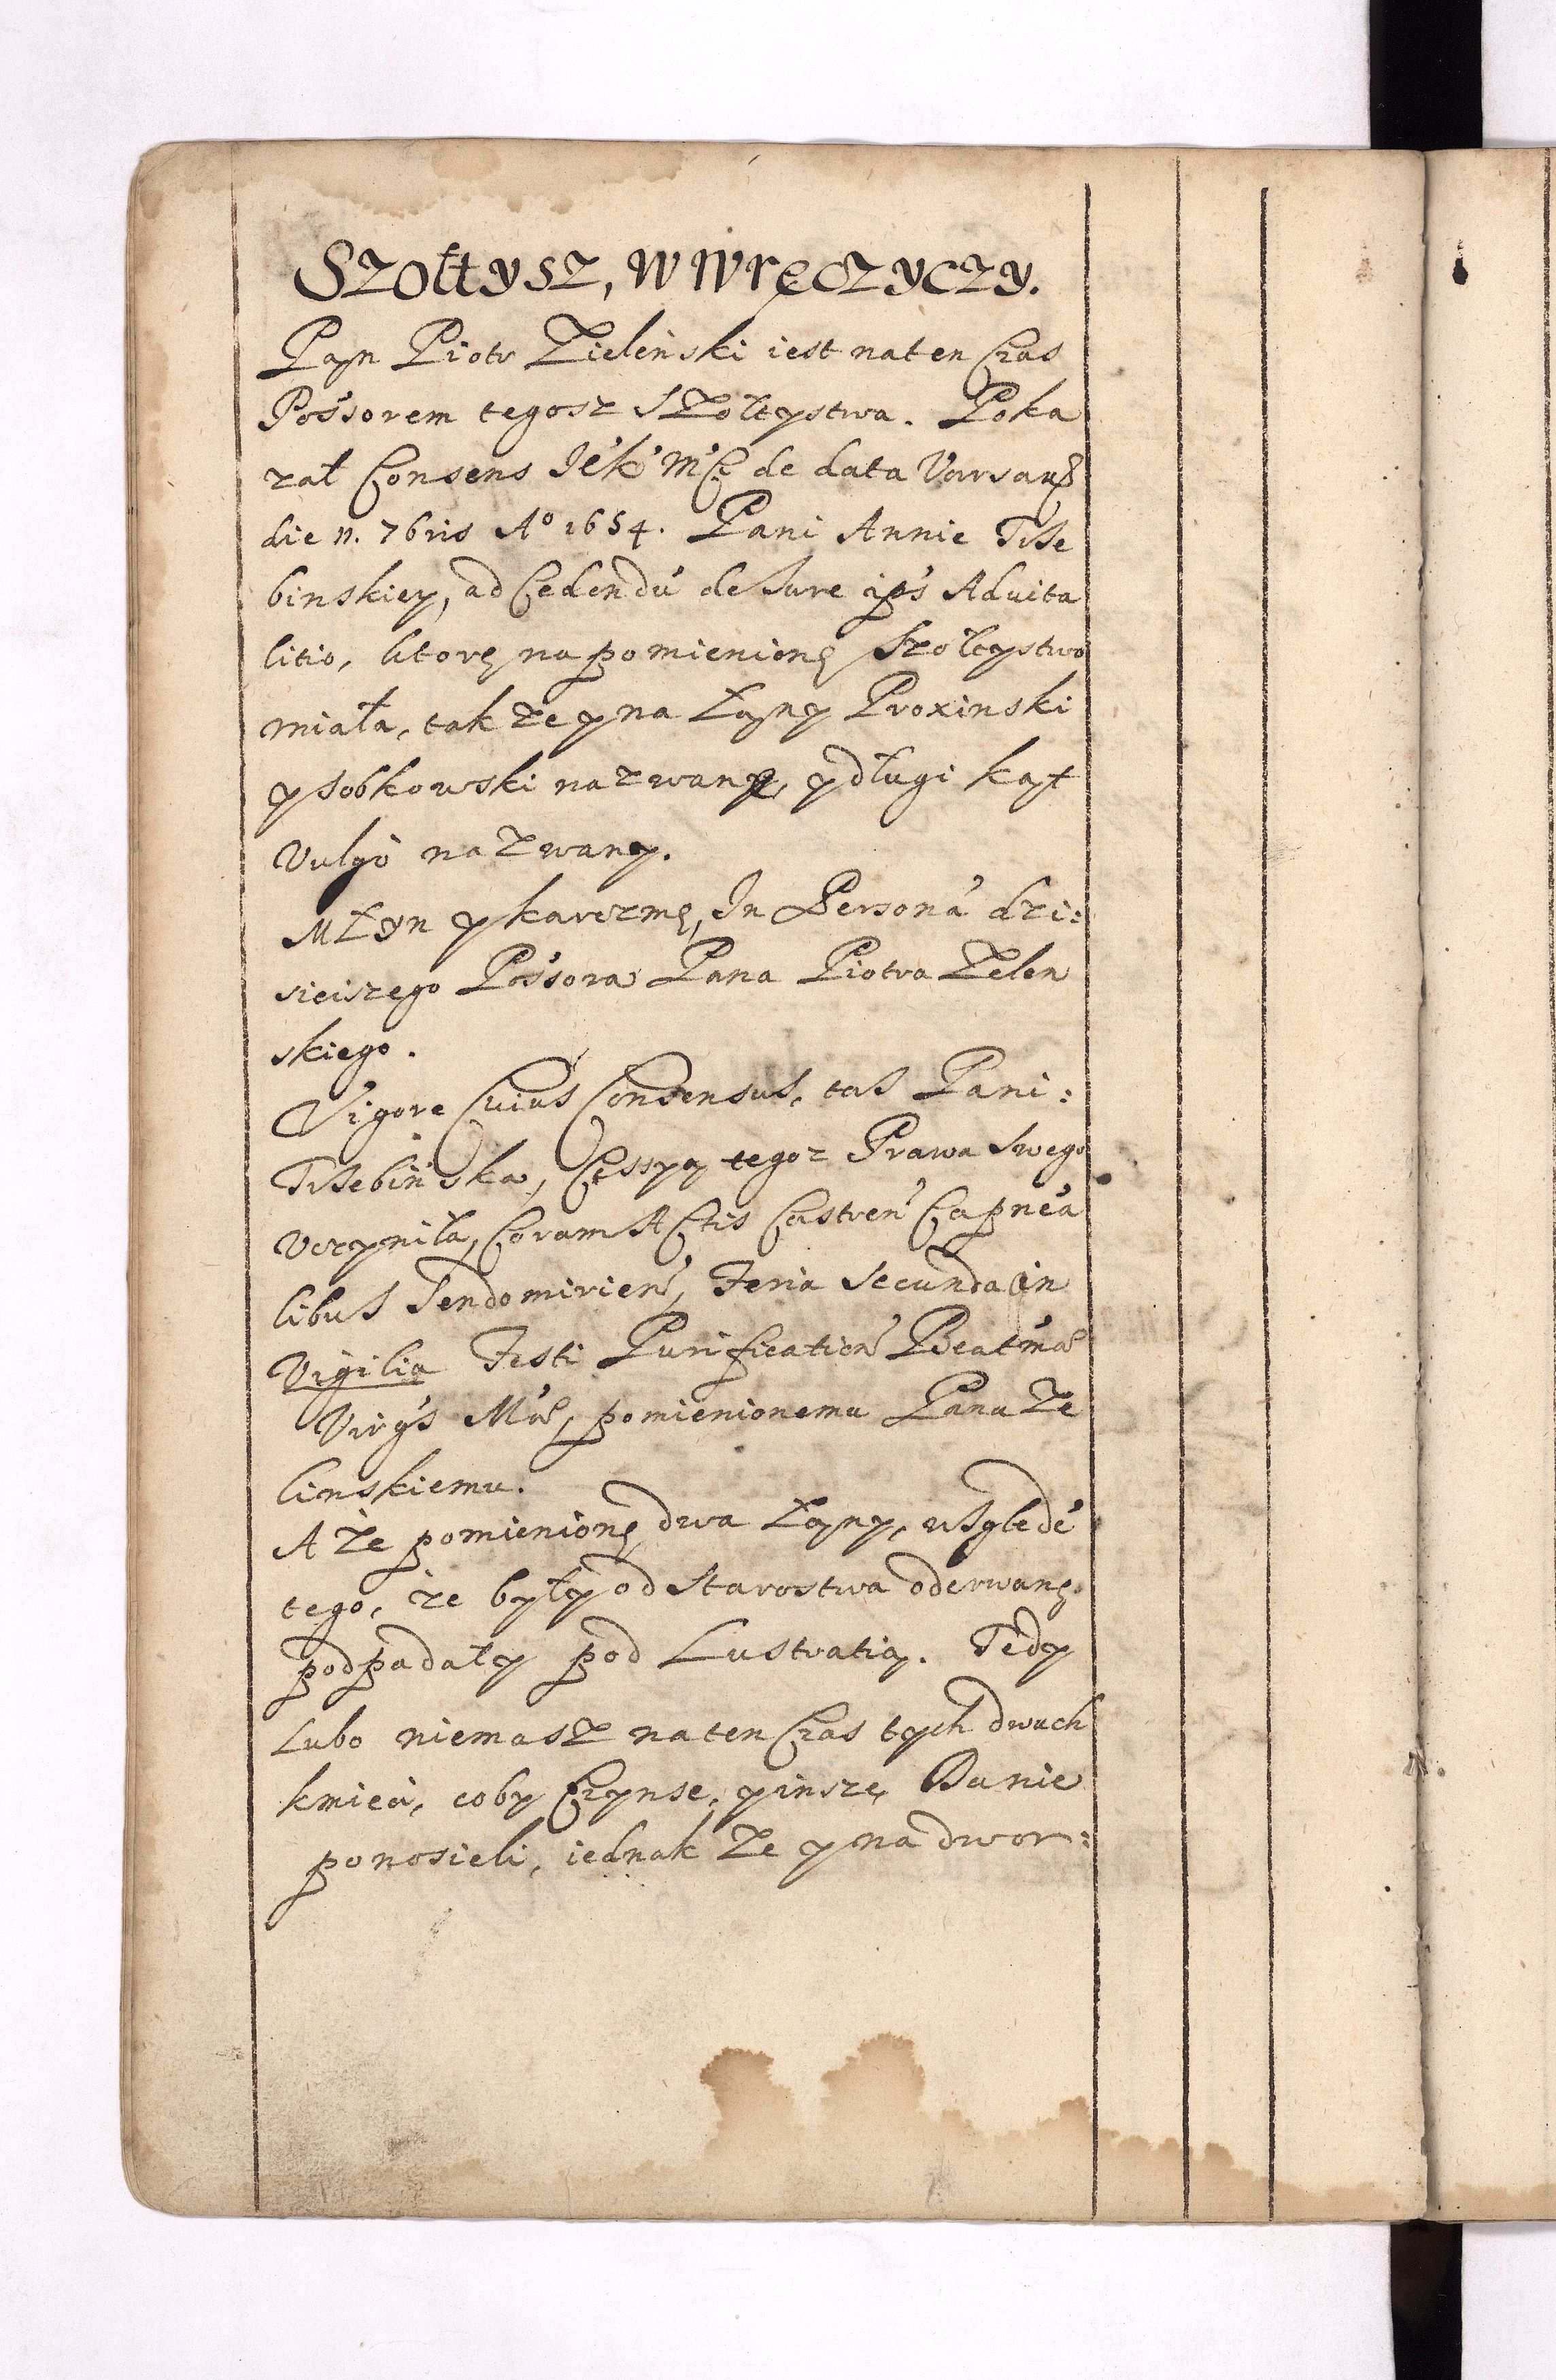 Szołtysz, w Wręczyczy.
Pąn Piotr Zieleński iest naten Czas
Pośsorem tegosz Szołtystwa. Poka
zał Consens Jék' M'Ci de data Varsauię
die 11. 7bris Aº 1654. Pani Annie Trse
binskiey, ad Cedendú de Iure ips's Aduita
litio, ktorę na pomienionę Szołtystwo
miała, tak ze y na Łąny Proxinski
y Sobkowski nazwanę, y długi kąt
Vulgò nazwany.
Młyn y karczmę, In Personá dzi:
sieiszego Pośsora Pana Piotra Zelen
skiego.
Vigore Cuius Consensus, tas Pani:
Trsebińska, Cessyą tegoz Prawa Swego
Vczyniła, Coram Actis Castren' Capnéa
libus Sendomirien', Feria Secunda in
Vigilia Festi Purification' Beatmæ
Virg's M'æ, pomienionemu Panu Ze
linskiemu.
A ze pomienionę dwa Łąny, wsględé
tego, ze były od Starostwa oderwanę
podpadały pod Lustratią. Tedy
Lubo niemasz naten Czas tych dwuch
kmieci, coby Czynse, y inszę Danie
ponosieli, iednak ze y na dwor: